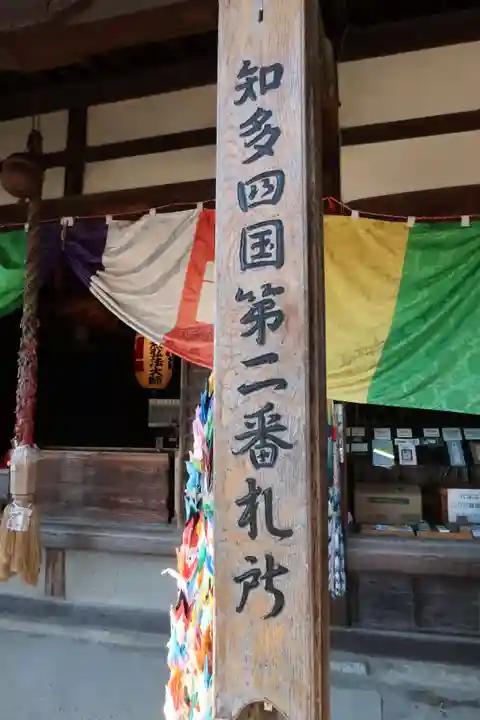 知多四国第二番札所
弘法大師